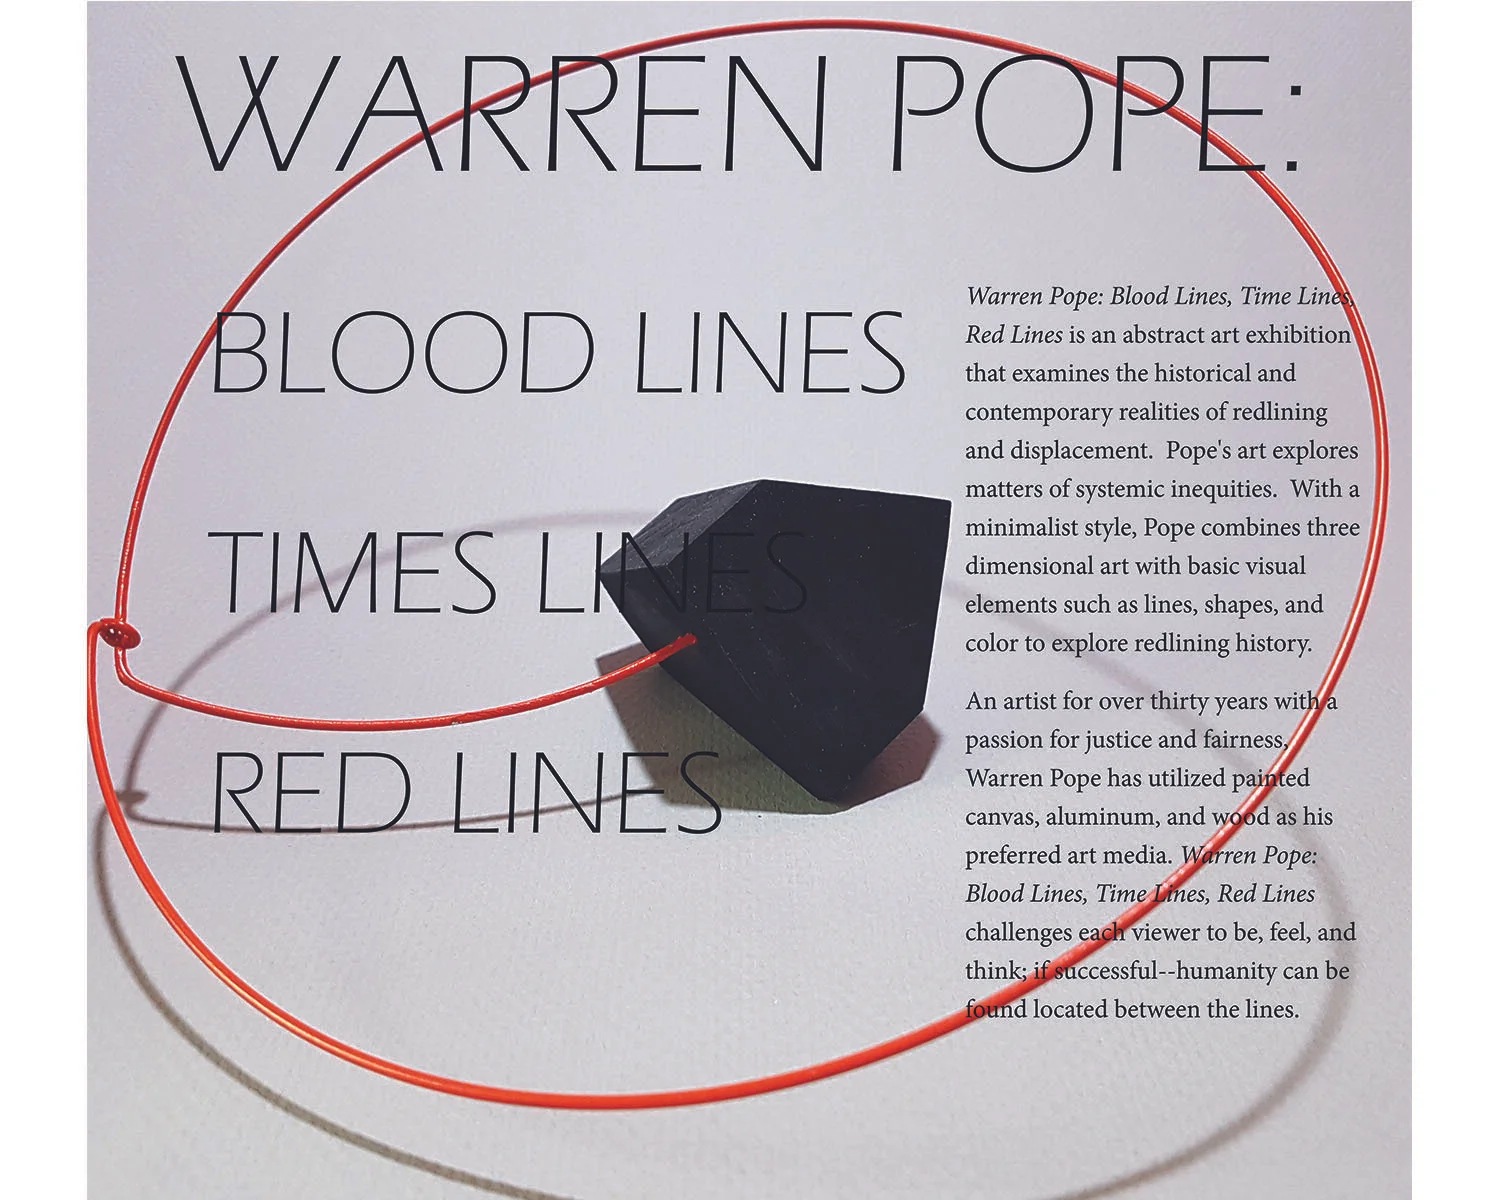 WARREN POPE:
BLOOD LINES
TIMES LINES
RED LINES
Warren Pope: Blood Lines, Time Lines,
Red Lines is an abstract art exhibition
that examines the historical and
contemporary realities of redlining
and displacement.  Pope's art explores
matters of systemic inequities.  With a
minimalist style, Pope combines three
dimensional art with basic visual
elements such as lines, shapes, and
color to explore redlining history.
An artist for over thirty years with a
passion for justice and fairness,
Warren Pope has utilized painted
canvas, aluminum, and wood as his
preferred art media. Warren Pope:
Blood Lines, Time Lines, Red Lines
challenges each viewer to be, feel, and
think; if successful--humanity can be
found located between the lines.